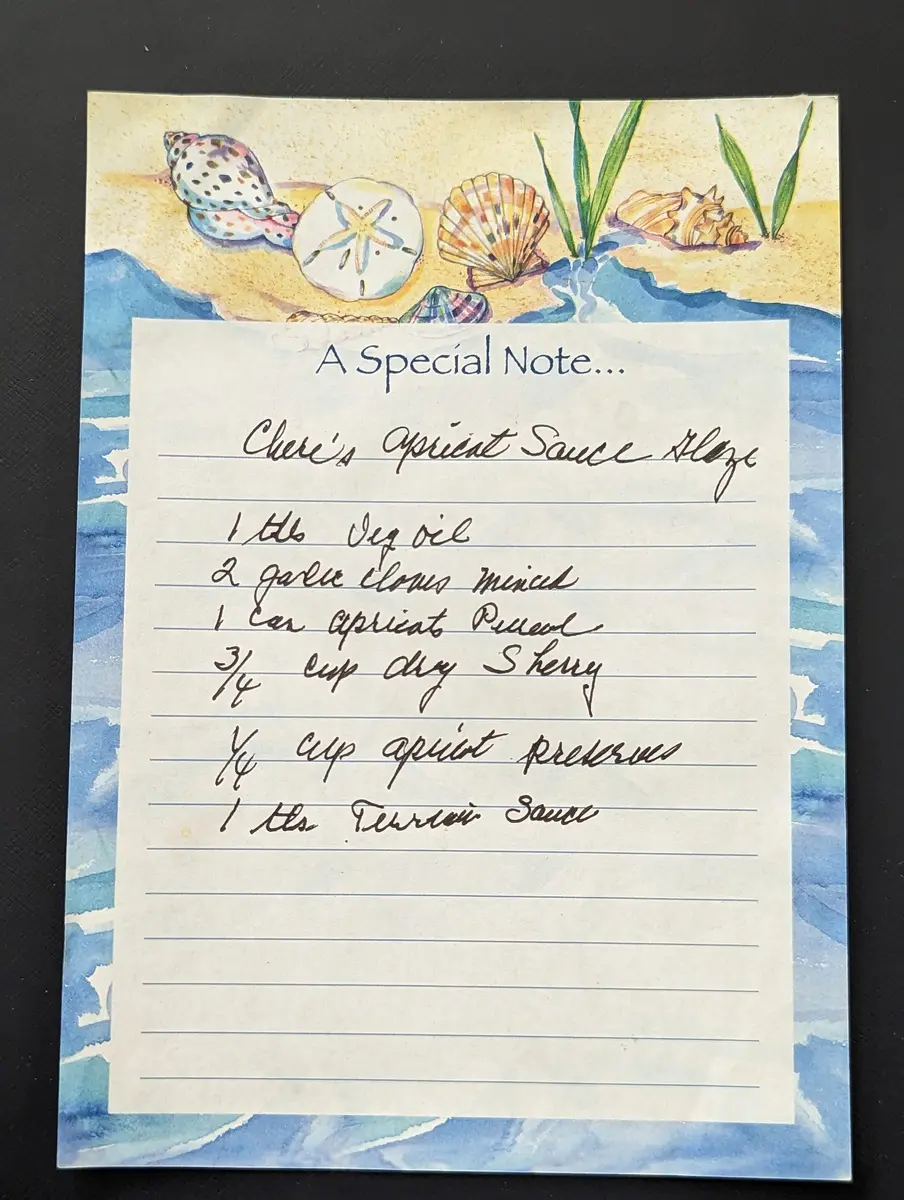 A Special Note...
Cheri's Apricot Sauce Glaze
1 tbs Veg oil
2 garlic cloves minced
1 can apricots Pureed
3/4 cup dry Sherry
1/4 cup apricot preserves
1 tbs. Sauce